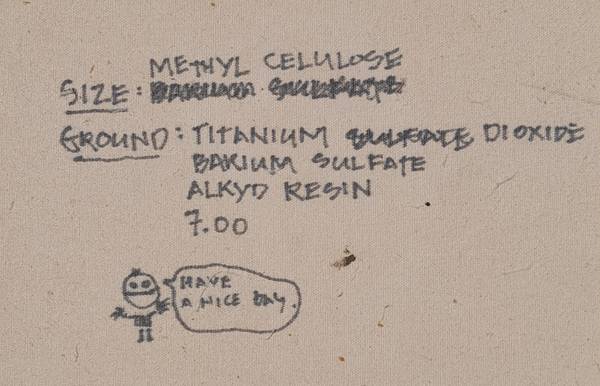 METHYL CELULOSE
SIZE: BARIUM SULFATE
GROUND: TITANIUM SULFATE DIOXIDE
BARIUM SULFATE
ALKYD RESIN
7.00
HAVE
A NICE DAY.